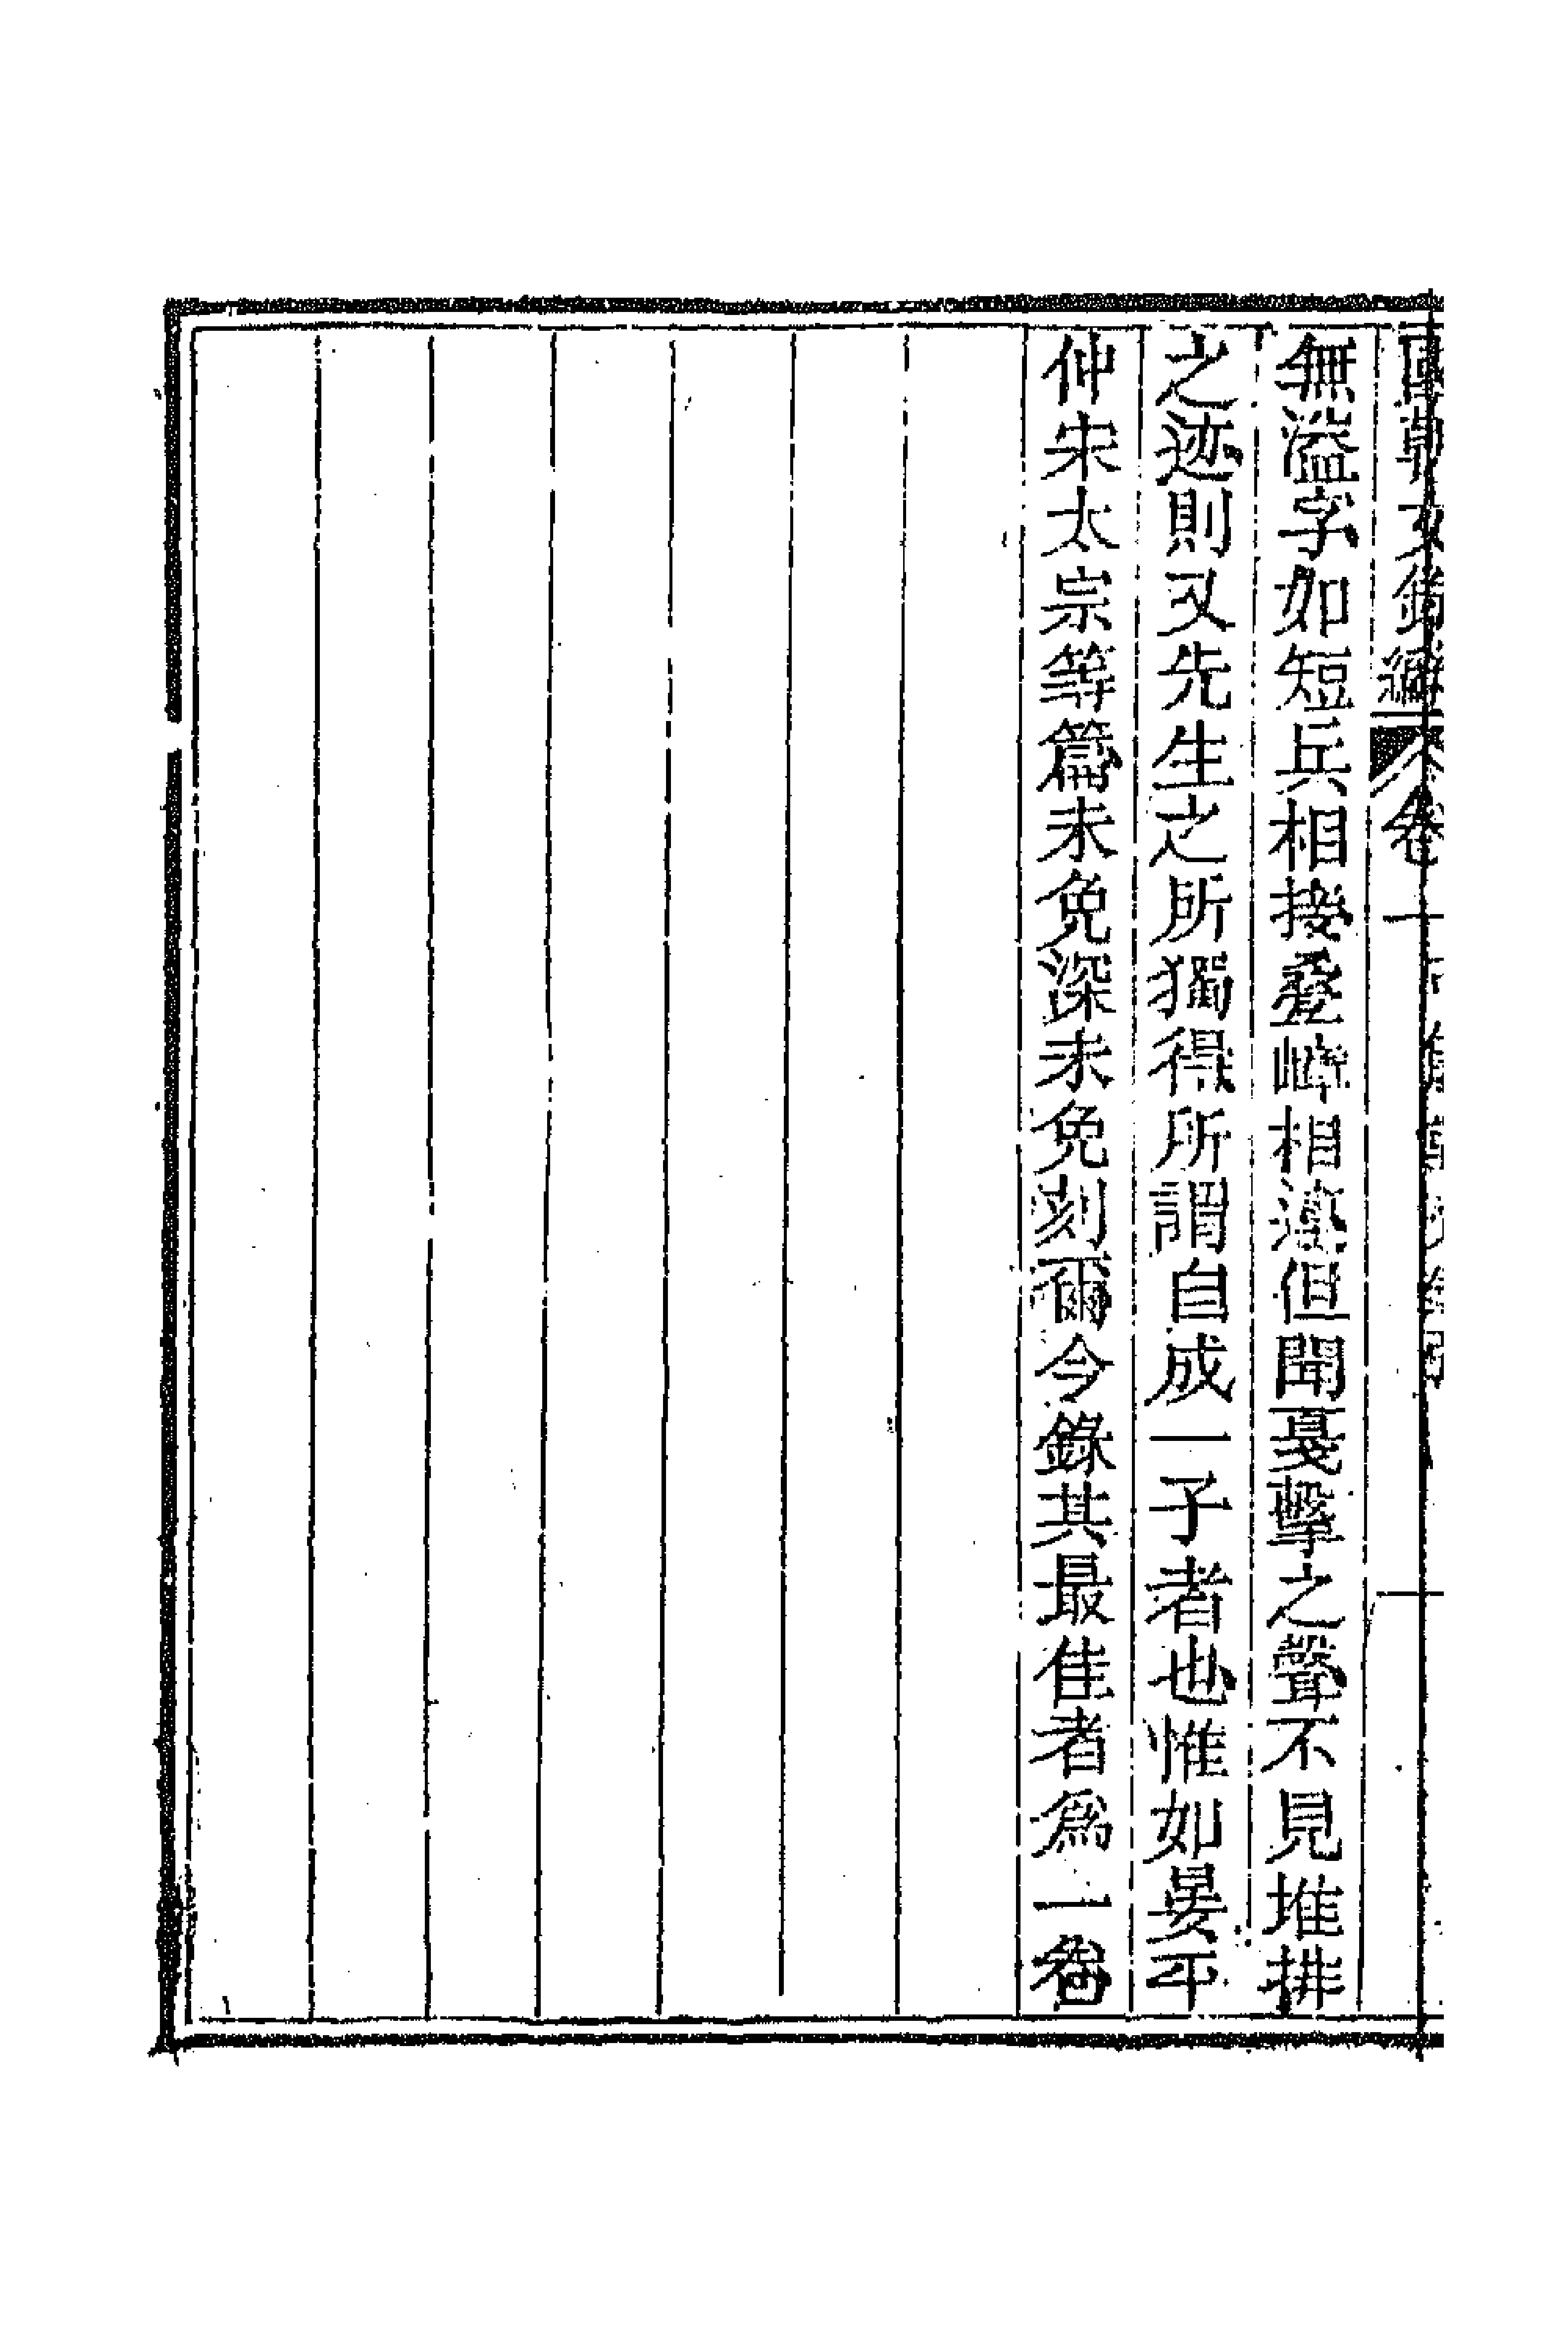 國朝文錄續編 卷一
無溢字如短兵相接叠嶂相湊但聞戛擊之聲不見堆排
之迹則又先生之所獨得所謂自成一子者也惟如晏平
仲宋太宗等篇未免深未免刻爾今錄其最佳者爲一卷